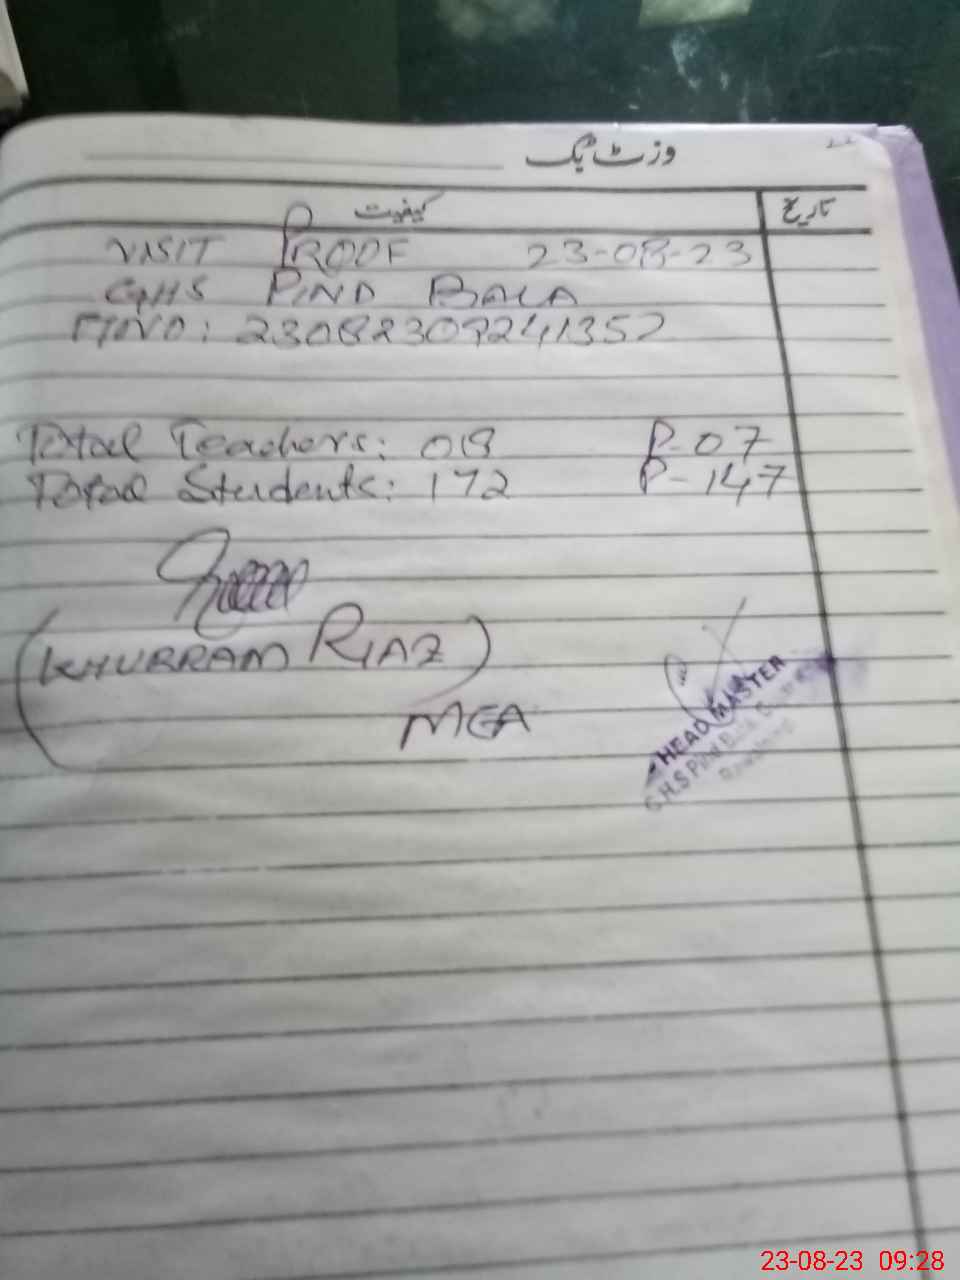 وزٹ بک
کیفیت تاریخ
VISIT PROOF 23-08-23
GHS PIND BALA
Total Teachers: 08 P-07
Total Students: 172 P-147
(KHURRAM RIAZ)
MEA
HEAD MASTER
G.H.S PIND
23-08-23 09:28